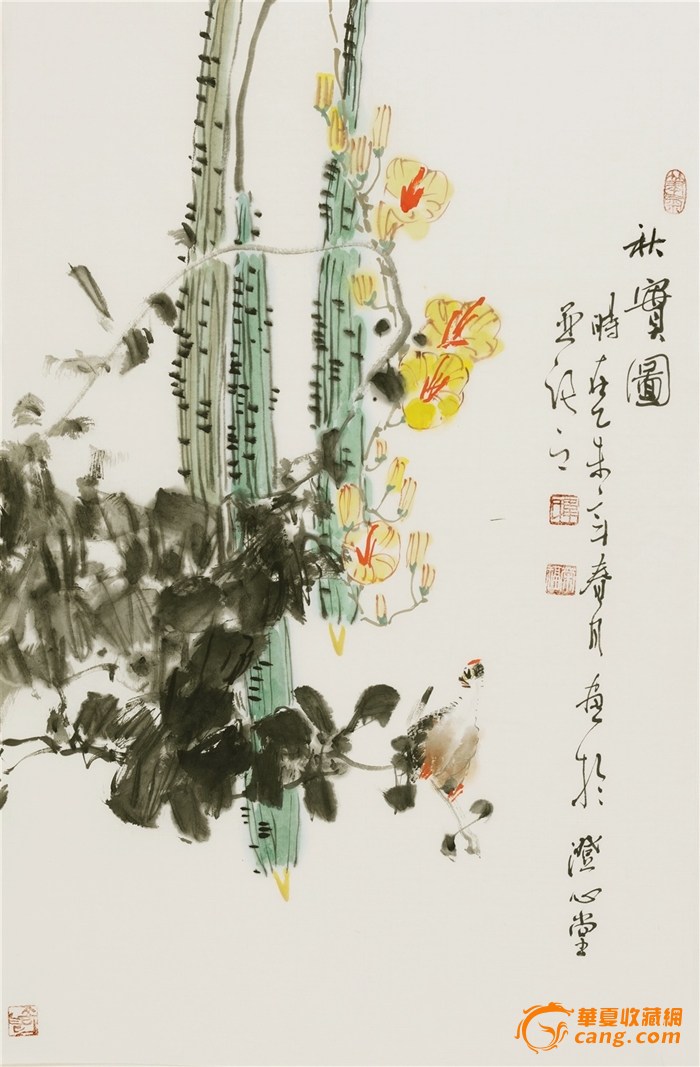 秋實圖
時在乙未年春月畫於澄心堂
並記之
華夏收藏網
cang.com